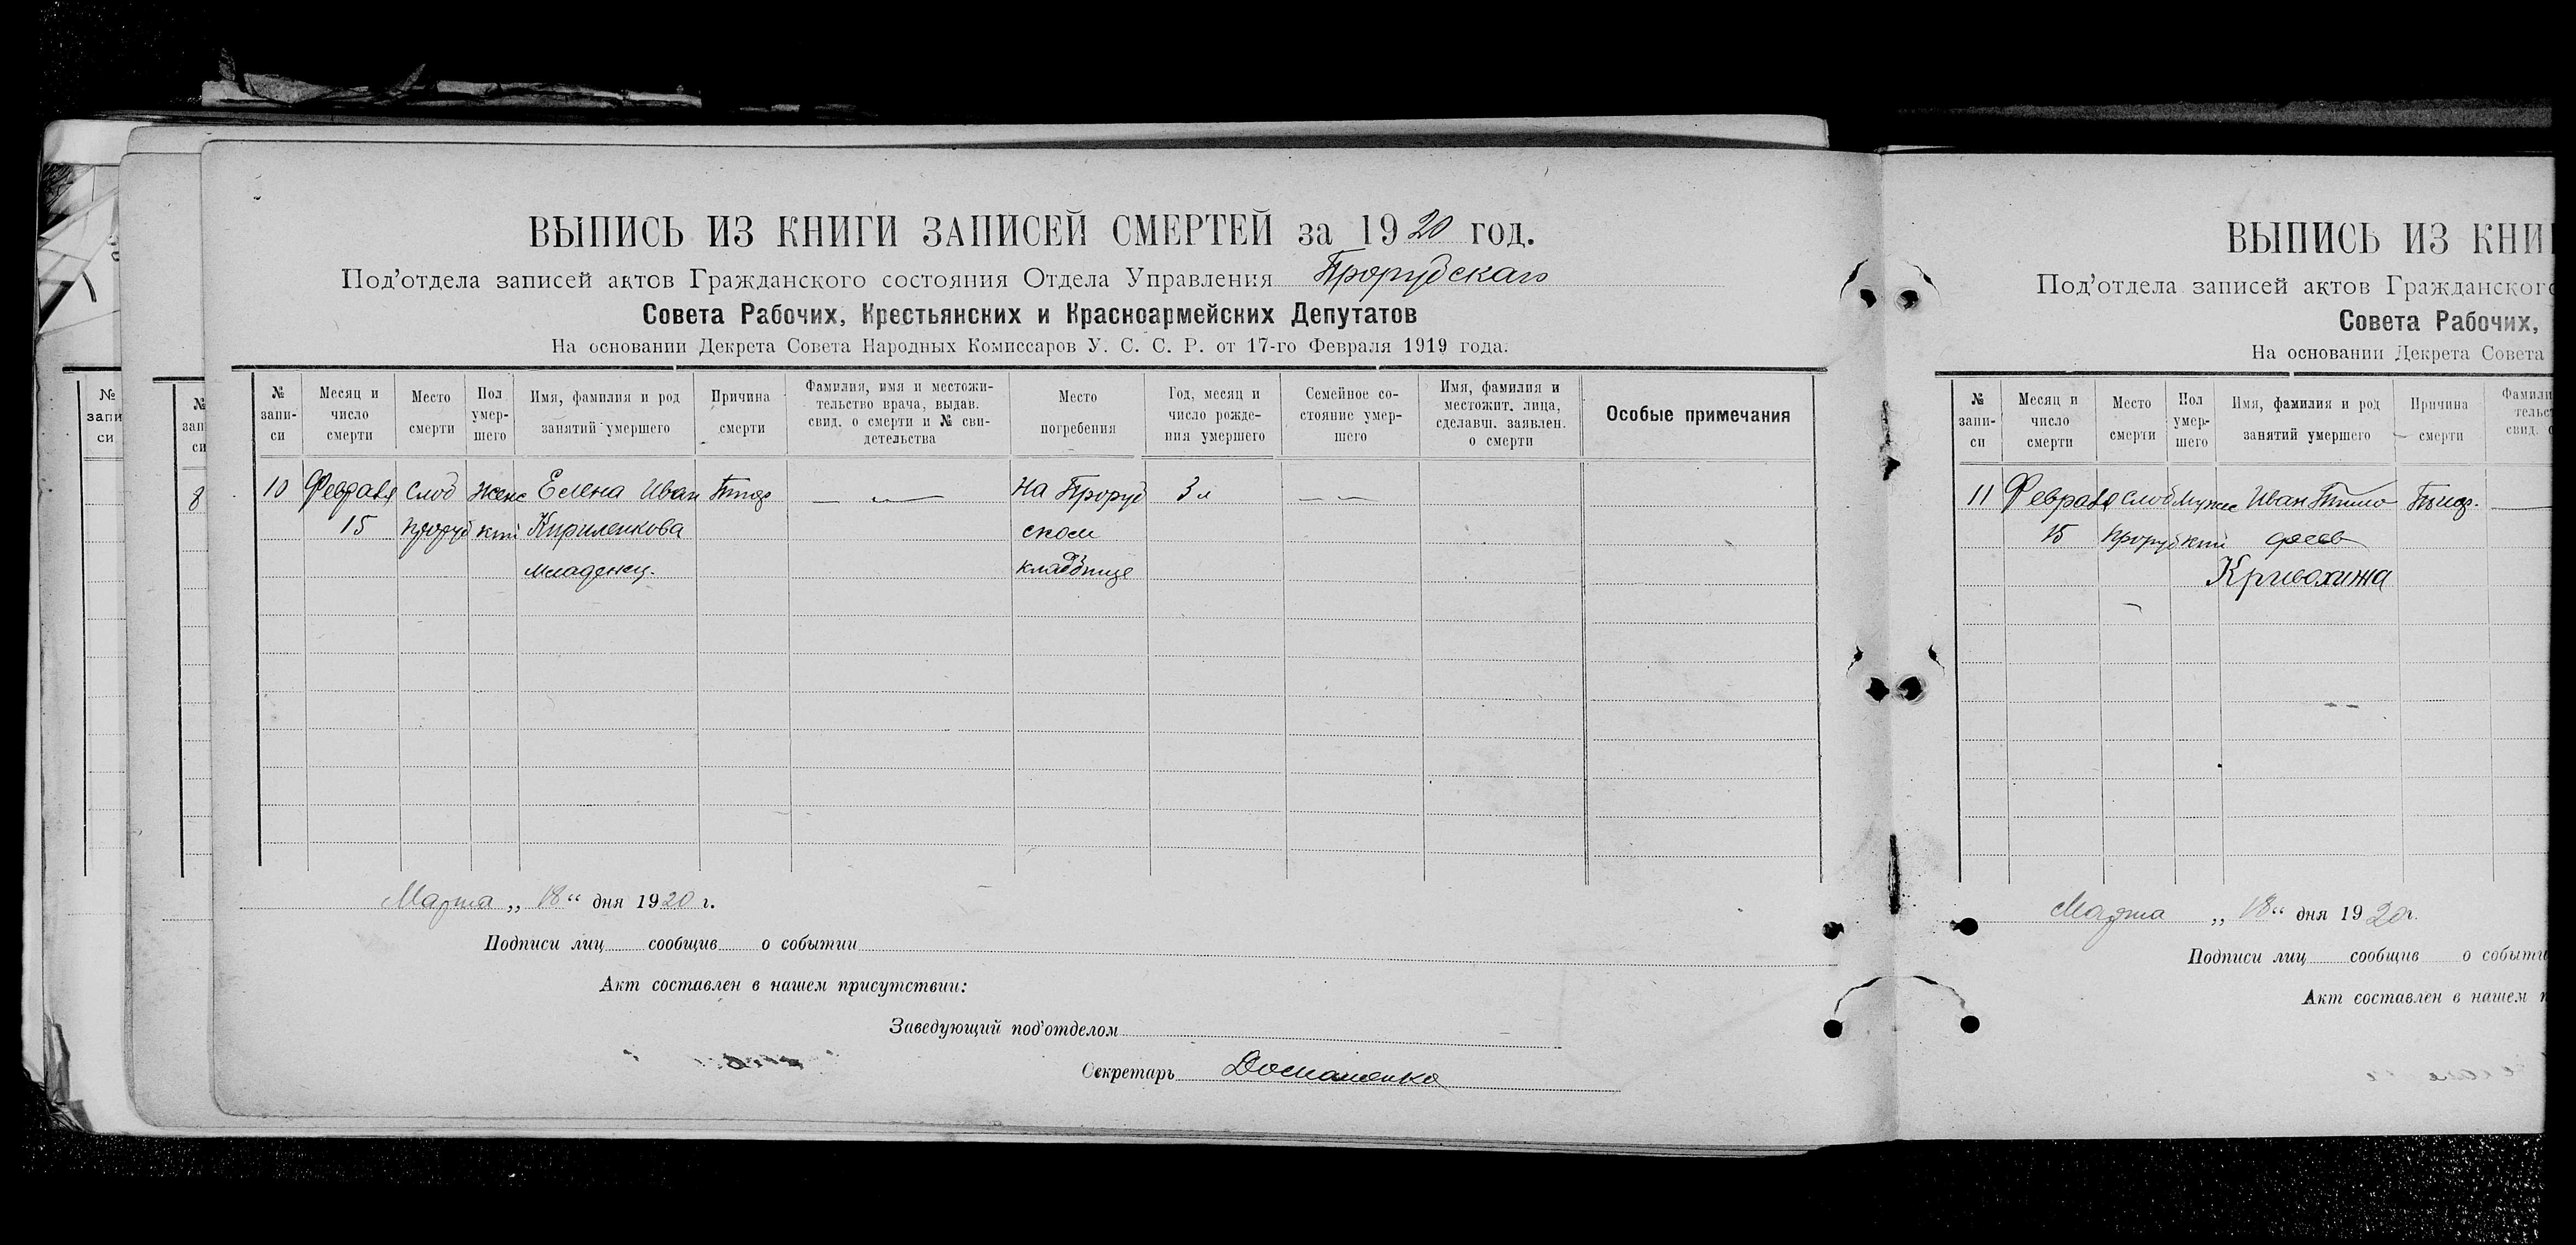 ВЫПИСЬ ИЗ КНИГИ ЗАПИСЕЙ СМЕРТЕЙ за 1920 год.
Под'отдела записей актов Гражданского состояния Отдела Управления Прорубскаго
Совета Рабочих, Крестьянских и Красноармейских Депутатов
На основании Декрета Совета Народных Комиссаров У. С. С. Р. от 17-го Февраля 1919 года.
№ запи-си
Месяц и число смерти
Место смерти
Пол умер-шего
Имя, фамилия и род занятий умершего
Причина смерти
Фамилия, имя и местожи-тельство врача, выдав. свид. о смерти и № сви-детельства
Место погребения
Год, месяц и число рожде-ния умершего
Семейное со-стояние умер-шего
Имя, фамилия и местожит. лица, сделавш. заявлен. о смерти
Особые примечания
10 Февраля Слоб женс Елена Иван Тиф На Проруб 3 л
15 проруб кий Кириленкова ском
младенец. кладбище
Марта „ 18 “ дня 1920 г.
Подписи лиц сообщив о событии
Акт составлен в нашем присутствии:
Заведующий под'отделом
Секретарь
№ запи си
№ зап си
8
ВЫПИСЬ ИЗ КНИ
Под'отдела записей актов Гражданског
Совета Рабочих,
На основании Декрета Совета
№ запи-си
Месяц и число смерти
Место смерти
Пол умер-шего
Имя, фамилия и род занятий умершего
Причина смерти
Фамили тельс свид. о
11 Февраля слоб Мужс Иван Тимо Тиф.
15 проруб кий феев
Кривохижа
Марта „ 18 “ дня 1920 г.
Подписи лиц сообщив о событи
Акт составлен в нашем п